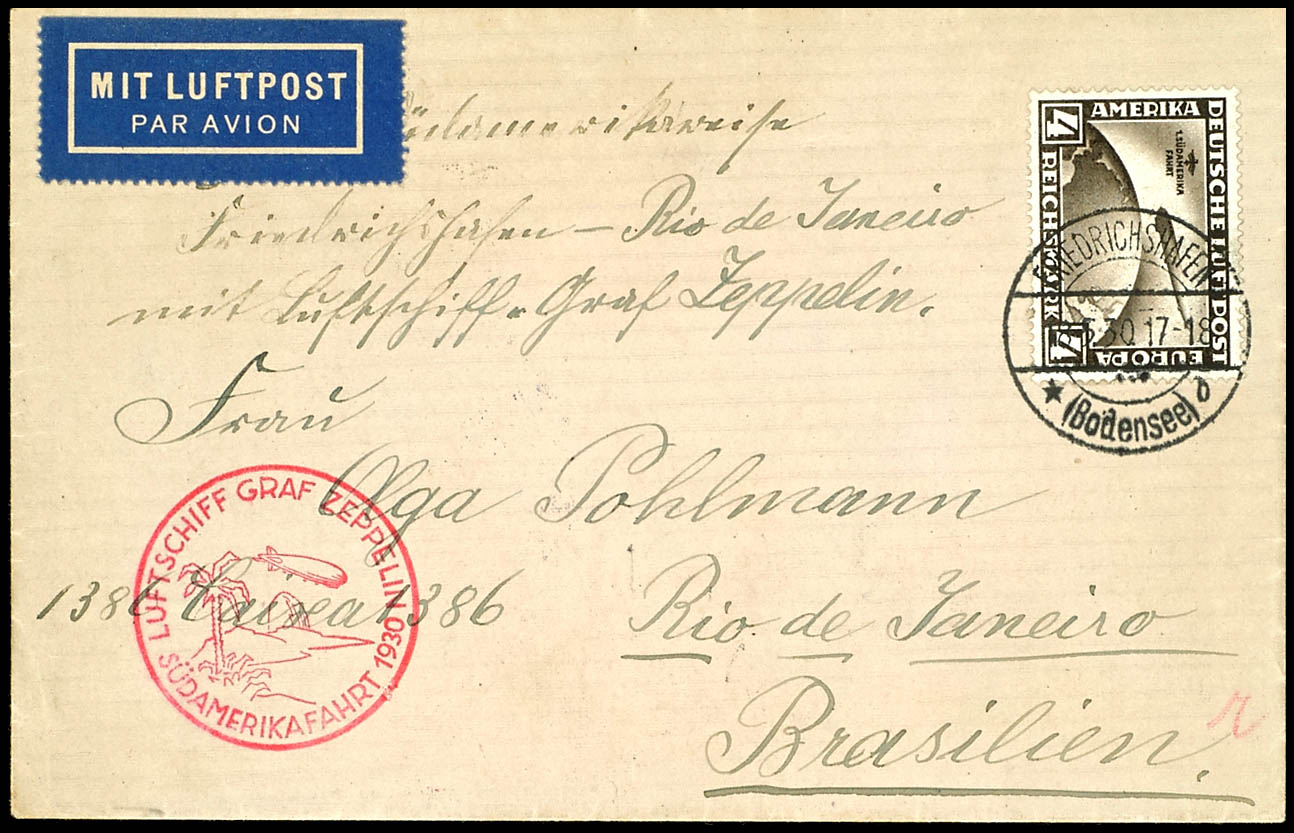 MIT LUFTPOST
PAR AVION
Südamerikareise
Friedrichshafen – Rio de Janeiro
mit Luftschiff „Graf Zeppelin.
Frau
Olga Pohlmann
1386 Caixa 1386
Rio de Janeiro
Brasilien.
AMERIKA
DEUTSCHE LUFTPOST
EUROPA
4 REICHSMARK 4
1. SÜDAMERIKA
FAHRT
FRIEDRICHSHAFEN
5.30.17-18
★ (Bodensee) b
LUFTSCHIFF GRAF ZEPPELIN
SÜDAMERIKAFAHRT 1930